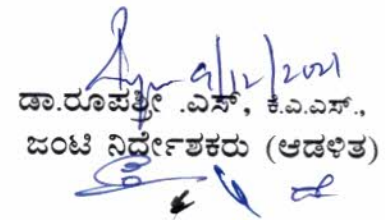 9/12/2021
ಡಾ.ರೂಪಶ್ರೀ .ಎಸ್, ಕೆ.ಎ.ಎಸ್.,
ಜಂಟಿ ನಿರ್ದೇಶಕರು (ಆಡಳಿತ)